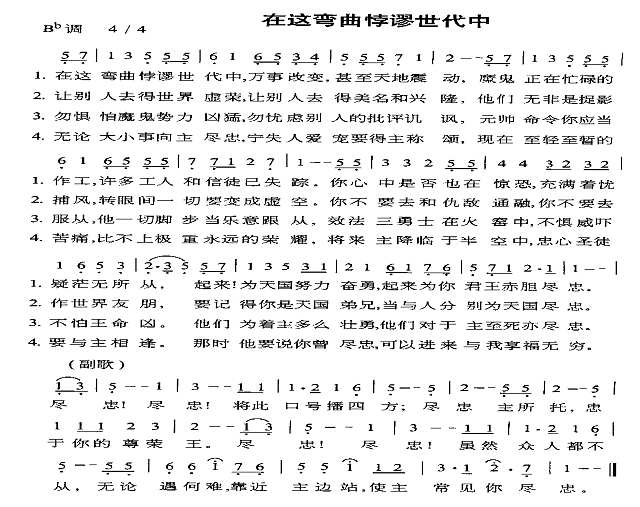 在这弯曲悖谬世代中
B♭调 4/4
5 7 | 1 3 5 5 5 | 6 1 6 5 3 4 | 5 5 5 5 7 1 | 2 - - 5 7 | 1 3 5 5 5 |
1. 在这 弯曲悖谬世 代中,万事改变,甚至天地震 动, 魔鬼 正在忙碌的
2. 让别 人去得世界 虚荣,让别人去 得美名和兴 隆, 他们 无非是捉影
3. 勿惧 怕魔鬼势力 凶猛,勿忧虑别 人的批评讥 讽, 元帅 命令你应当
4. 无论 大小事向主 尽忠,宁失人爱 宠要得主称 颂, 现在 至轻至暂的
6 1 6 5 5 5 | 7 7 1 2 7 | 1 - - 5 5 | 3 3 2 5 5 | 4 4 3 2 3 2 |
1. 作工,许多工人 和信徒已失 踪。你心 中是否也在 惊恐,充满着忧
2. 捕风,转眼间一 切要变成虚 空。你不 要去和仇敌 通融,你不要去
3. 服从,他一切脚 步当乐意跟 从, 效法 三勇士在火 窑中,不惧威吓
4. 苦痛,比不上极 重永远的荣 耀, 将来 主降临于半 空中,忠心圣徒
1 6 5 3 | 2·3 5 5 7 | 1 3 5 3 1 | 2 1 6 1 7 6 | 5 7 1 2·1 | 1 - - |
1. 疑茫无所 从, 起来!为天国努力 奋勇,起来为你 君王赤胆尽 忠。
2. 作世界友 朋, 要记 得你是天国 弟兄,当与人分 别为天国尽 忠。
3. 不怕王命 凶。 他们 为着主多么 壮勇,他们对于 主至死亦尽 忠。
4. 要与主相 逢。 那时 他要说你曾 尽忠,可以进来 与我享福无 穷。
(副歌)
1 3 | 5 - - 1 | 3 - - 1 1 | 1·2 1 6 | 5 - - 5 | 2 - - 5 5 | 2 - - 5 |
尽 忠! 尽 忠! 将此 口号播四 方; 尽 忠 主所 托, 忠
1 1 1 1 2 3 | 2 - - 1 3 | 5 - - 1 | 3 - - 1 1 | 1·2 1 6 |
于你的尊荣 王。 尽 忠! 尽 忠! 虽然 众人都不
5 - - 5 5 | 6 6 1 7 6 | 5 5 1 1 2 | 3·1 2·7 | 1 - - ‖
从, 无论 遇何难,靠近 主边站,使主 常见你尽 忠。